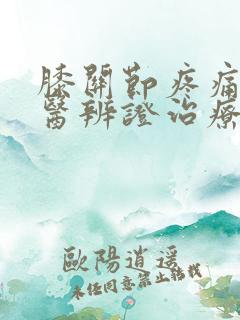 膝關節疼痛
醫辨證治療
歐陽逍遥
未任同意禁止轉載